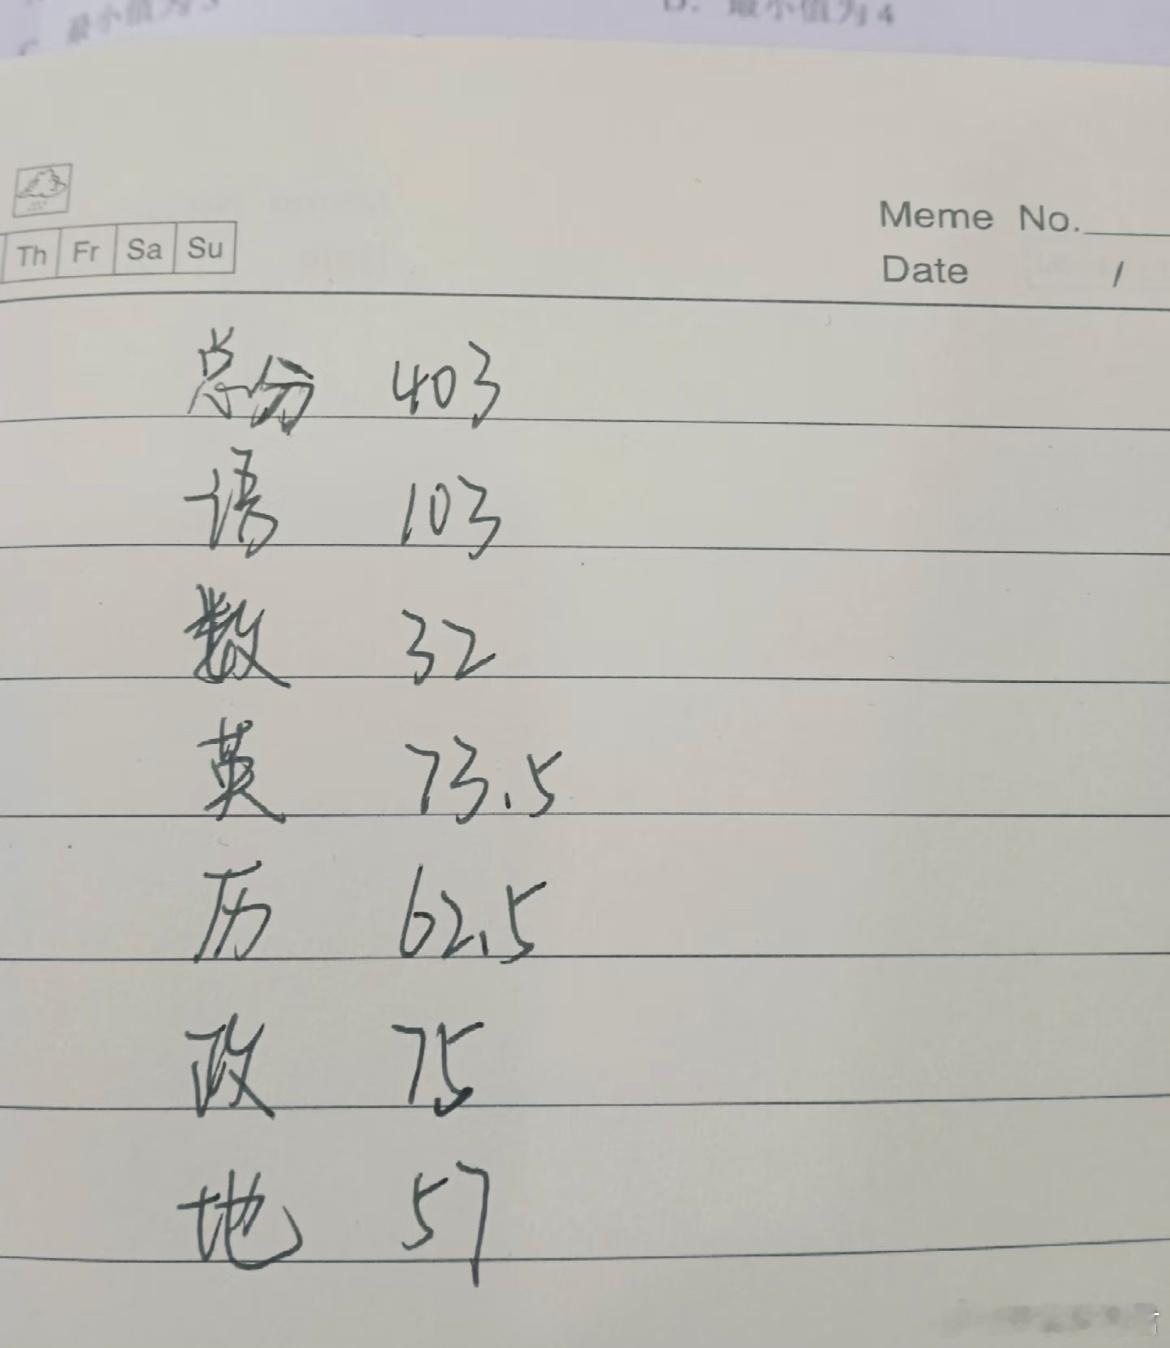 最小值为3
D. 最小值为4
C
Th Fr Sa Su
Meme No.
Date /
总分 403
语 103
数 32
英 73.5
历 62.5
政 75
地 57